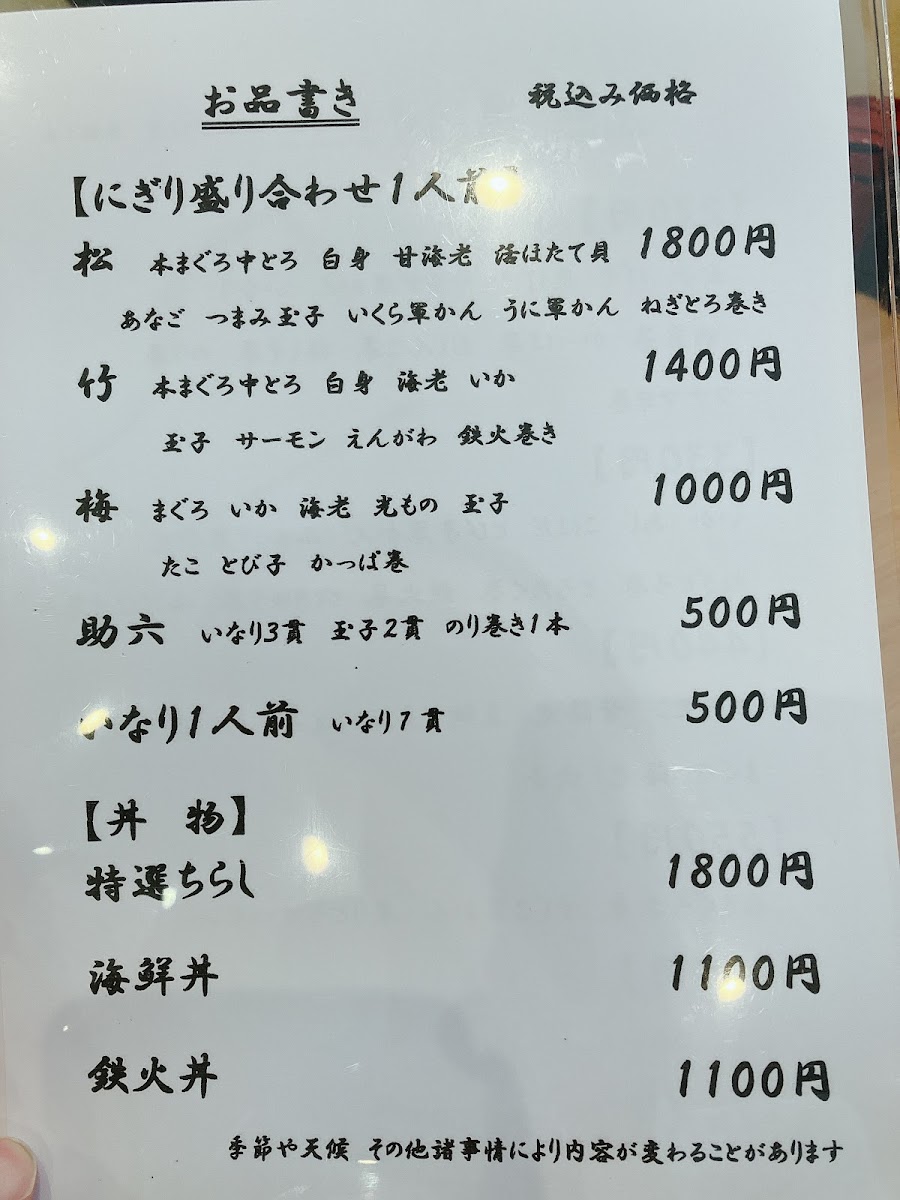 お品書き 税込み価格
【にぎり盛り合わせ1人前】
松 本まぐろ中とろ 白身 甘海老 活ほたて貝 1800円
あなご つまみ玉子 いくら軍かん うに軍かん ねぎとろ巻き
竹 本まぐろ中とろ 白身 海老 いか 1400円
玉子 サーモン えんがわ 鉄火巻き
梅 まぐろ いか 海老 光もの 玉子 1000円
たこ とび子 かっぱ巻
助六 いなり3貫 玉子2貫 のり巻き1本 500円
いなり1人前 いなり7貫 500円
【丼 物】
特選ちらし 1800円
海鮮丼 1100円
鉄火丼 1100円
季節や天候 その他諸事情により内容が変わることがあります